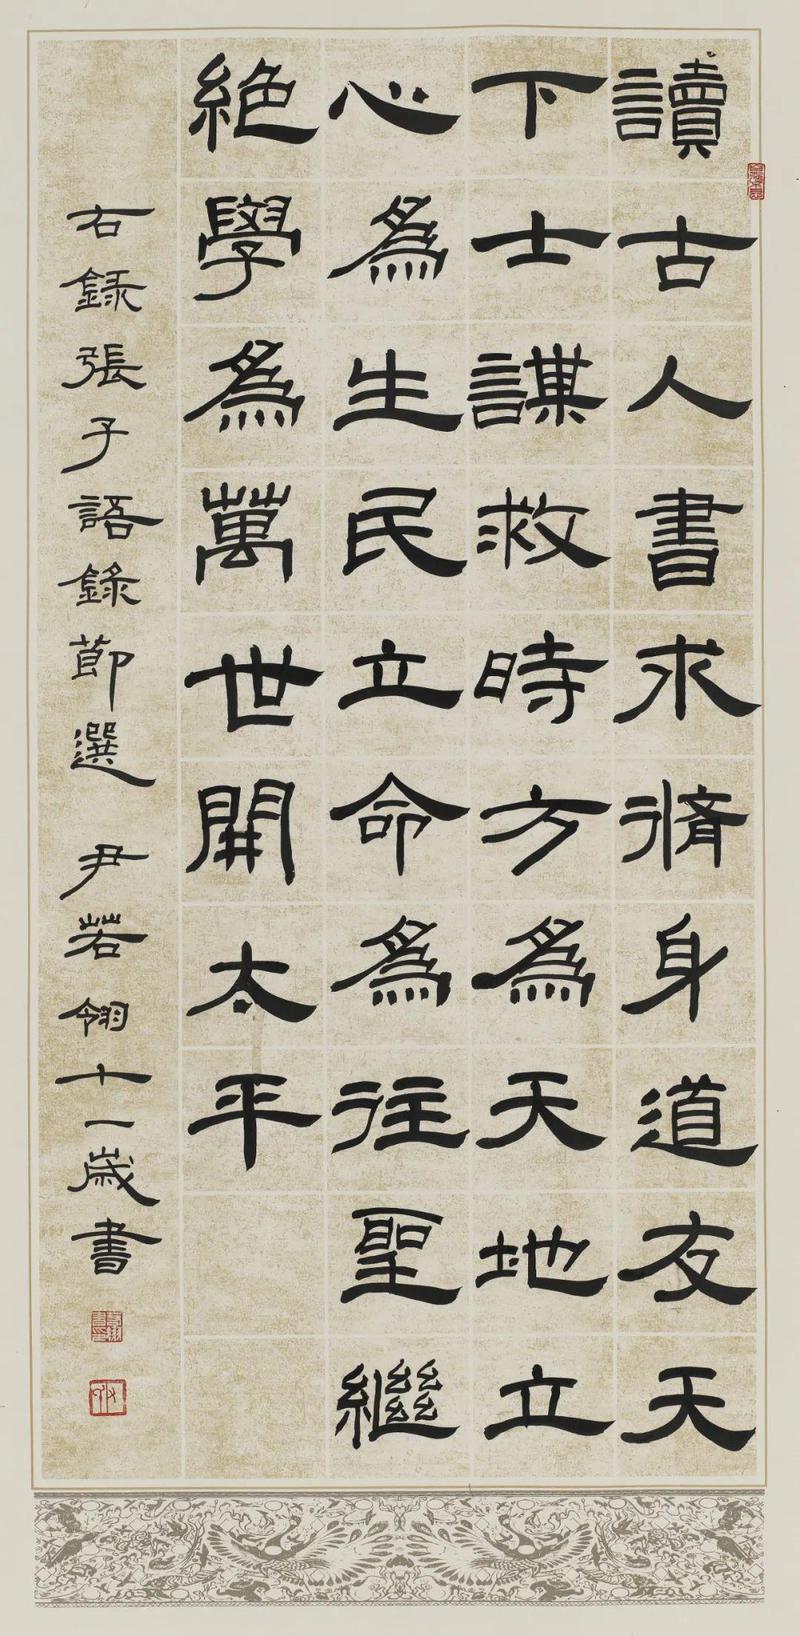 讀古人書求脩身道友天
下士謀救時方為天地立
心為生民立命為往聖繼
絶學為萬世開太平
右録張子語錄節選 尹若翎十一歲書